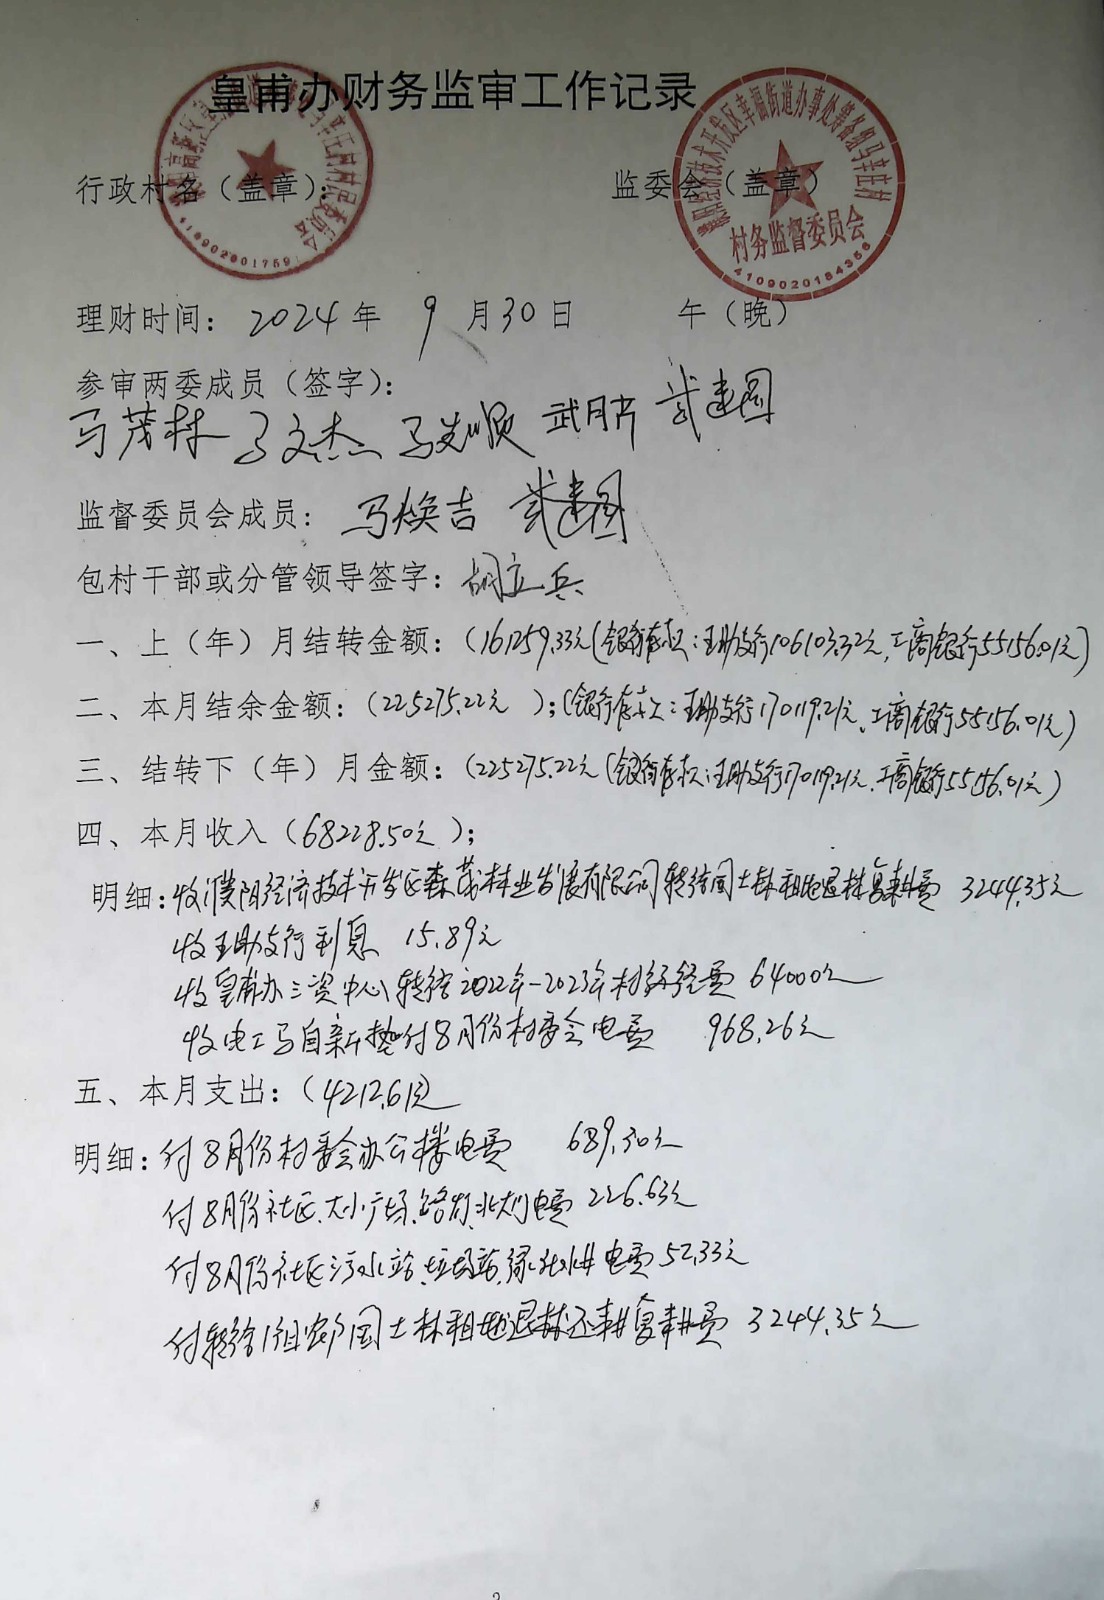 皇甫办财务监审工作记录
行政村名（盖章）：
监委会（盖章）
村民委员会
濮阳经济技术开发区幸福街道办事处筹备组马辛庄村
村务监督委员会
4109020184358
理财时间：2024年 9月30日 午（晚）
参审两委成员（签字）：
马茂林 马文杰 马发顺 武月芹 武建图
监督委员会成员：马焕吉 武建图
包村干部或分管领导签字：胡立兵
一、上（年）月结转金额：（161259.33元（银行存款：王助支行106103.32元，工商银行55156.01元）
二、本月结余金额：（225275.22元）；（银行存款：王助支行170119.21元、工商银行55156.01元）
三、结转下（年）月金额：（225275.22元（银行存款：王助支行170119.21元、工商银行55156.01元）
四、本月收入（68228.50元）；
明细：收濮阳经济技术开发区森茂林业发展有限公司转给国土林租地退林复耕费 3244.35元
收王助支行利息 15.89元
收皇甫办三资中心转给2022年-2023年村级经费 64000元
收电工马自新垫付8月份村委会电费 968.26元
五、本月支出：（4212.61元）
明细：付8月份村委会办公楼电费 689.30元
付8月份社区、大小广场、路灯、北大门电费 226.63元
付8月份社区污水站、垃圾站、绿化水井电费 52.33元
付转给1组农户国土林租地退林还耕复耕费 3244.35元